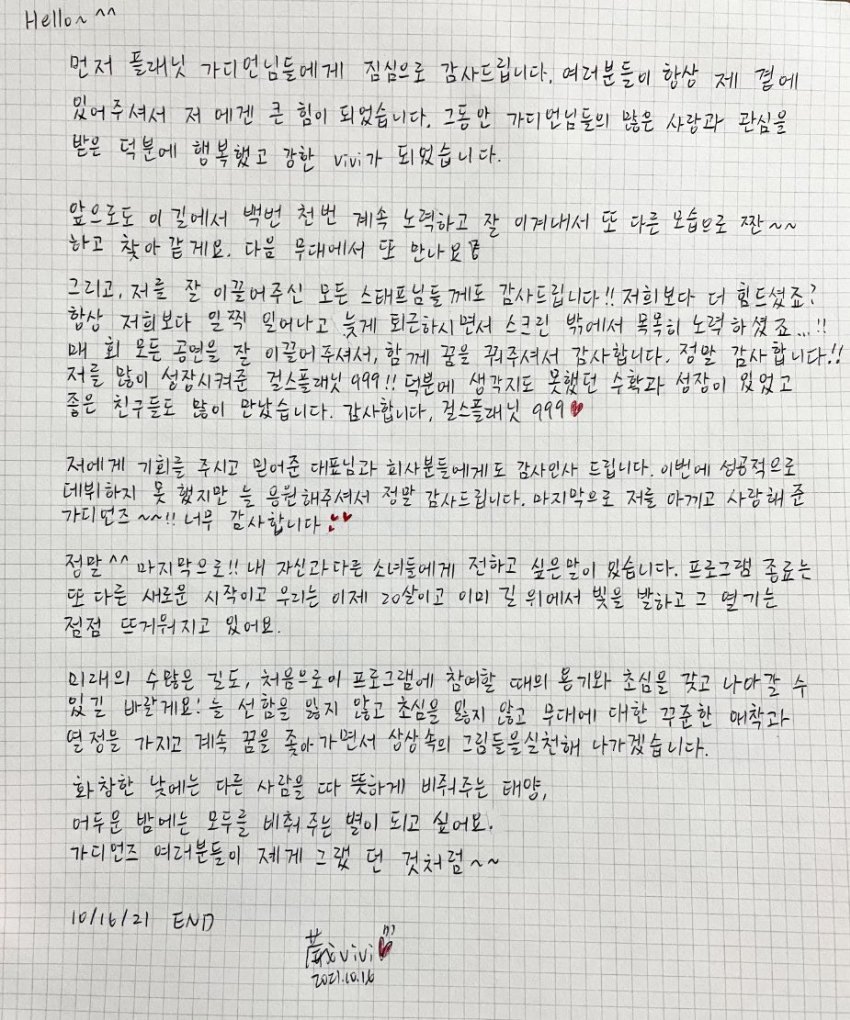 Hello~ ^^
먼저 플래닛 가디언님들에게 짐심으로 감사드립니다. 여러분들이 항상 제 곁에
있어주셔서 저 에겐 큰 힘이 되었습니다. 그동안 가디언님들의 많은 사랑과 관심을
받은 덕분에 행복했고 강한 vivi가 되었습니다.
앞으로도 이 길에서 백번 천번 계속 노력하고 잘 이겨내서 또 다른 모습으로 짠~~
하고 찾아 갈게요. 다음 무대에서 또 만나요
그리고, 저를 잘 이끌어주신 모든 스태프님들께도 감사드립니다!! 저희보다 더 힘드셨죠?
항상 저희보다 일찍 일어나고 늦게 퇴근하시면서 스크린 밖에서 묵묵히 노력하셨죠...!!
매 회 모든 공연을 잘 이끌어주셔서, 함께 꿈을 꿔주셔서 감사합니다. 정말 감사합니다!!
저를 많이 성장시켜준 걸스플래닛 999!! 덕분에 생각지도 못했던 수확과 성장이 있었고
좋은 친구들도 많이 만났습니다. 감사합니다, 걸스플래닛 999♥
저에게 기회를 주시고 믿어준 대표님과 회사분들에게도 감사인사 드립니다. 이번에 성공적으로
데뷔하지 못 했지만 늘 응원해주셔서 정말 감사드립니다. 마지막으로 저를 아끼고 사랑해 준
가디언즈 ~~!! 너무 감사합니다
정말^^ 마지막으로!! 내 자신과 다른 소녀들에게 전하고 싶은말이 있습니다. 프로그램 종료는
또 다른 새로운 시작이고 우리는 이제 20살이고 이미 길 위에서 빛을 발하고 그 열기는
점점 뜨거워지고 있어요.
미래의 수많은 길도, 처음으로이 프로그램에 참여할 때의 용기와 초심을 갖고 나아갈 수
있길 바랄게요! 늘 선함을 잃지 않고 초심을 잃지 않고 무대에 대한 꾸준한 애착과
열정을 가지고 계속 꿈을 좇아가면서 상상속의 그림들을실천해 나가겠습니다.
화창한 낮에는 다른 사람을 따 뜻하게 비춰주는 태양,
어두운 밤에는 모두를 비춰 주는 별이 되고 싶어요.
가디언즈 여러분들이 제게 그랬 던 것처럼~~
10/16/21 END
vivi♥
2021.10.16